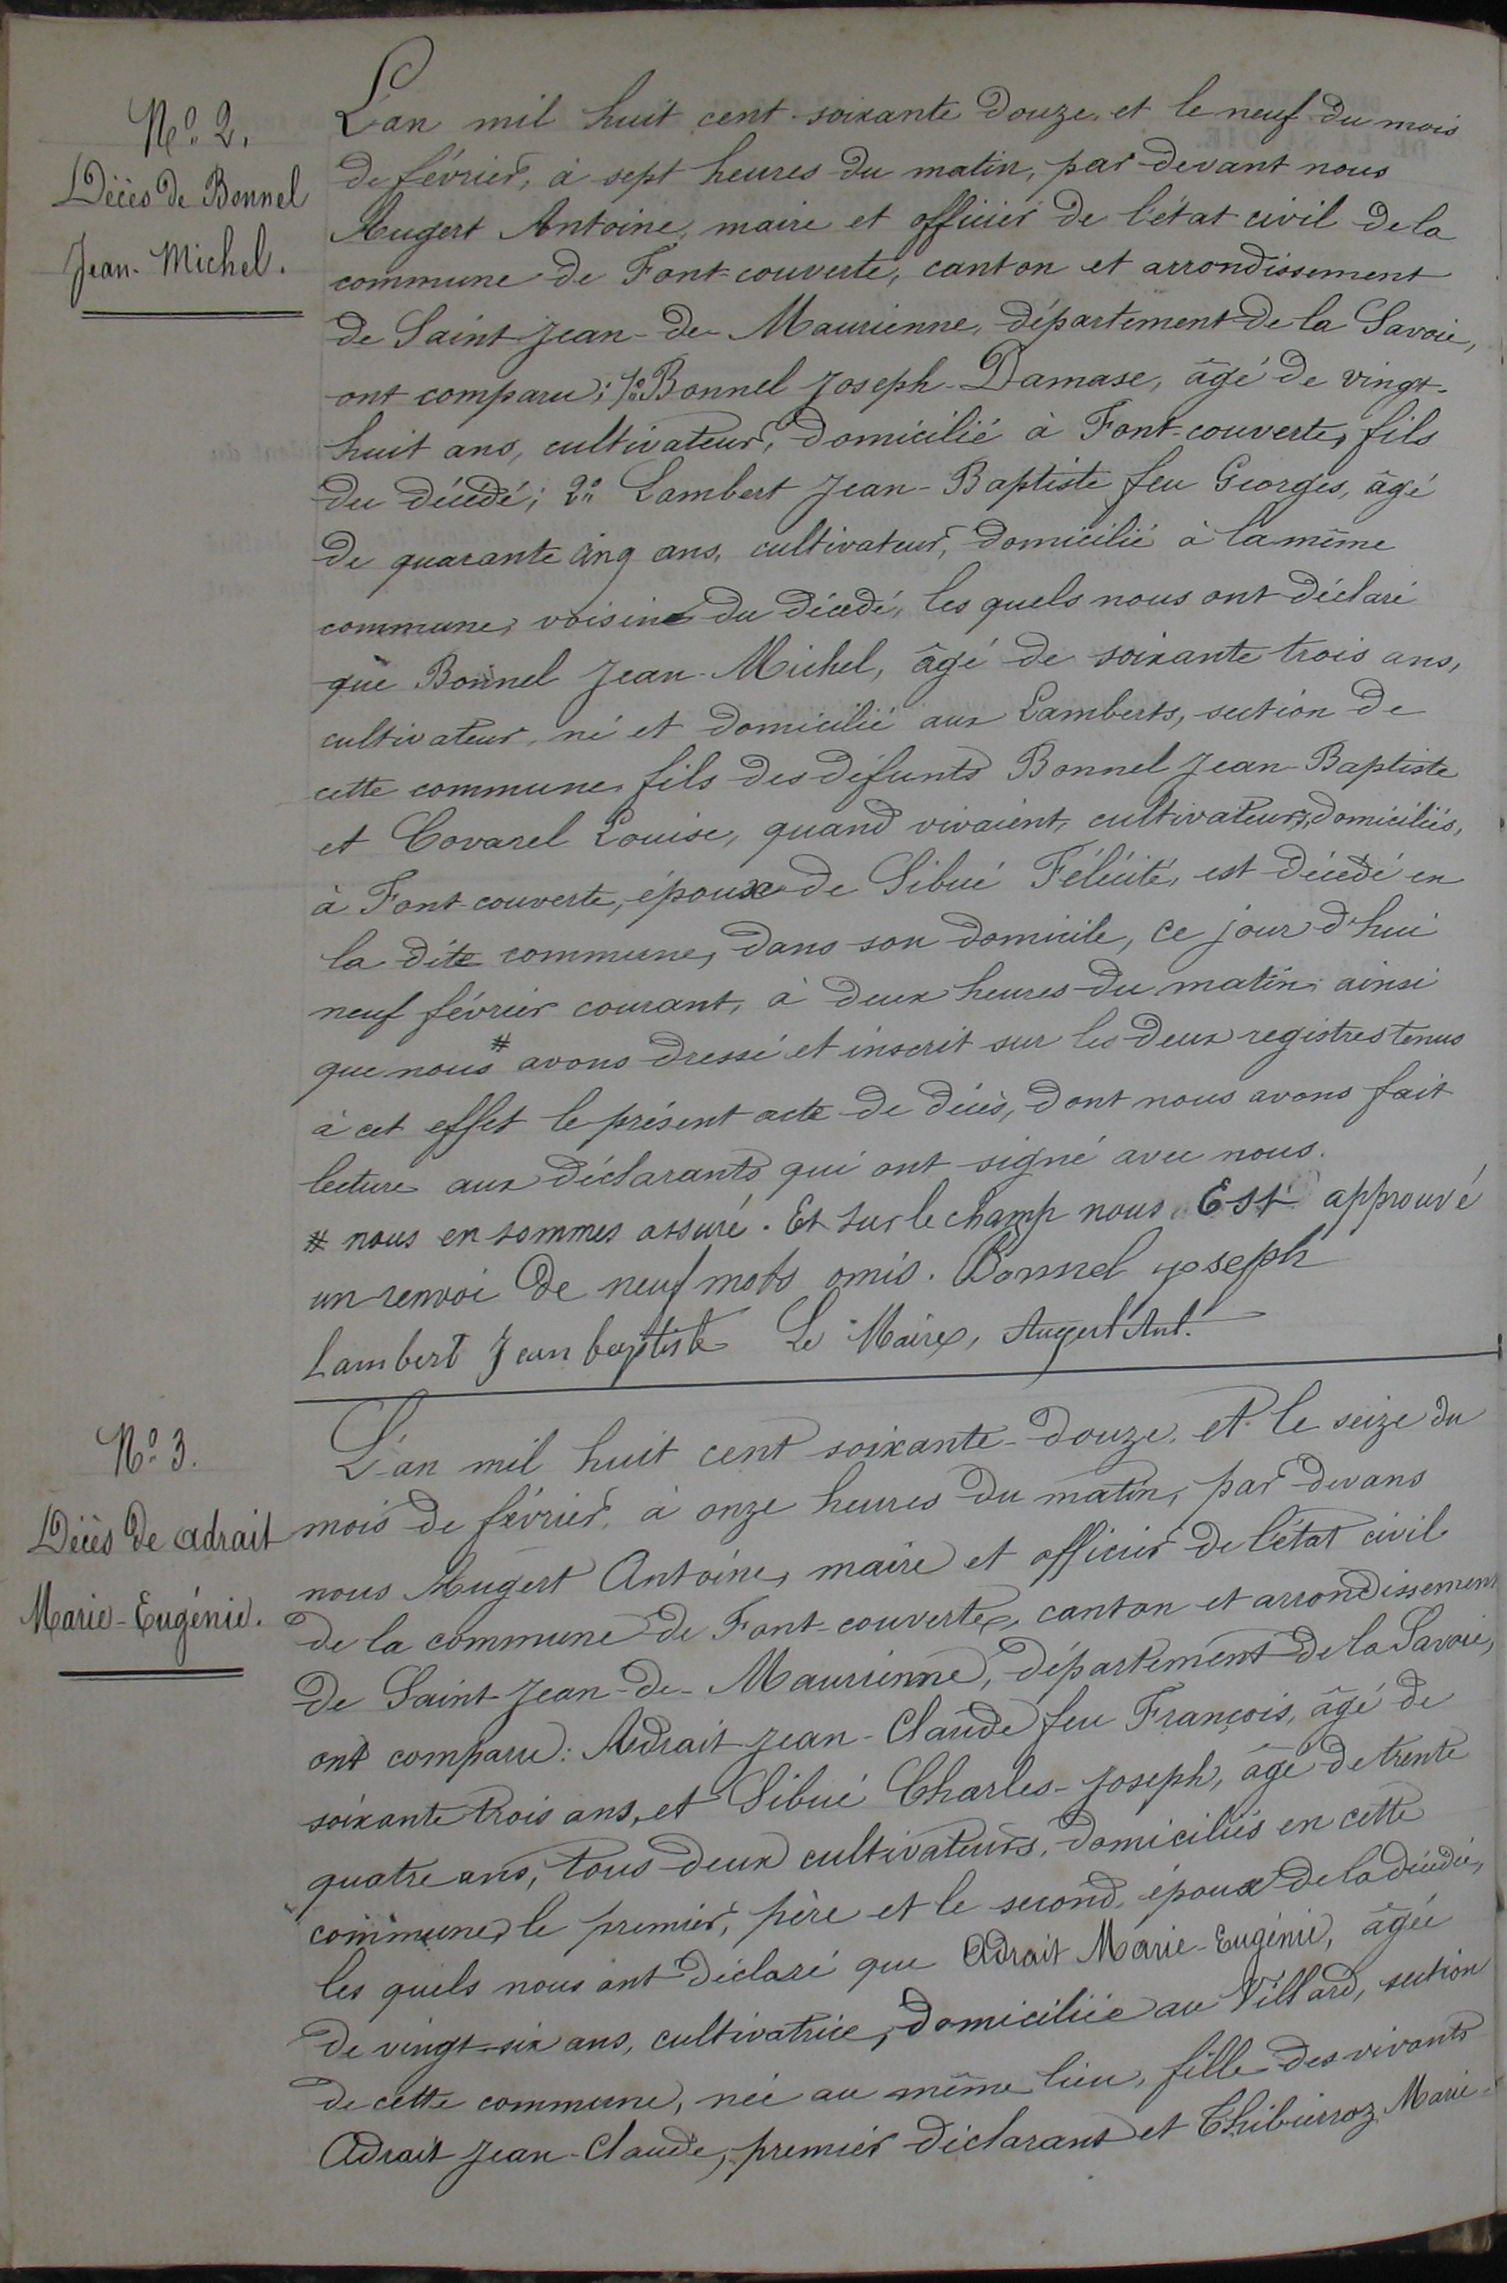 N° 2.
Décès de Bonnel
Jean-Michel.
L'an mil huit cent soixante douze, et le neuf du mois
de février, à sept heures du matin, par devant nous
Augert Antoine, maire et officier de l'état civil de la
commune de Font-couverte, canton et arrondissement
de Saint-Jean-de-Maurienne, département de la Savoie,
ont comparu; 1° Bonnel Joseph-Damase, âgé de vingt-
huit ans, cultivateur, domicilié à Font-couverte, fils
du décédé; 2° Lambert Jean-Baptiste feu Georges, âgé
de quarante cinq ans, cultivateur, domicilié à la même
commune, voisin du décédé, les quels nous ont déclaré
que Bonnel Jean-Michel, âgé de soixante trois ans,
cultivateur, né et domicilié aux Lamberts, section de
cette commune, fils des défunts Bonnel Jean-Baptiste
et Covarel Louise, quand vivaient, cultivateurs, domiciliés,
à Font-couverte, époux de Sibué Félicité, est décédé en
la dite commune, dans son domicile, ce jour d'hui
neuf février courant, à deux heures du matin; ainsi
que nous # avons dressé et inscrit sur les deux registres tenus
à cet effet le présent acte de décès, dont nous avons fait
lecture aux déclarants qui ont signé avec nous.
# nous en sommes assuré. Et sur le champ nous. Est approuvé
un renvoi de neuf mots omis. Bonnel joseph
Lambert Jean baptiste Le Maire, Augert Ant.
N° 3.
Décès de Adrait
Marie-Eugénie.
L'an mil huit cent soixante-douze, et le seize du
mois de février, à onze heures du matin, par devans
nous Augert Antoine, maire et officier de l'état civil
de la commune de Font-couverte, canton et arrondissement
de Saint-Jean-de-Maurienne, département de la Savoie,
ont comparu: Adrait Jean-Claude feu François, âgé de
soixante trois ans, et Sibué Charles-Joseph, âgé de trente
quatre ans, tous deux cultivateurs, domiciliés en cette
commune, le premier, père et le second, époux de la décédée,
les quels nous ont déclaré que Adrait Marie-Eugénie, âgée
de vingt-six ans, cultivatrice, domiciliée au Villard, section
de cette commune, née au même lieu, fille des vivants
Adrait Jean-Claude, premier déclarans et Thibierroz Marie-